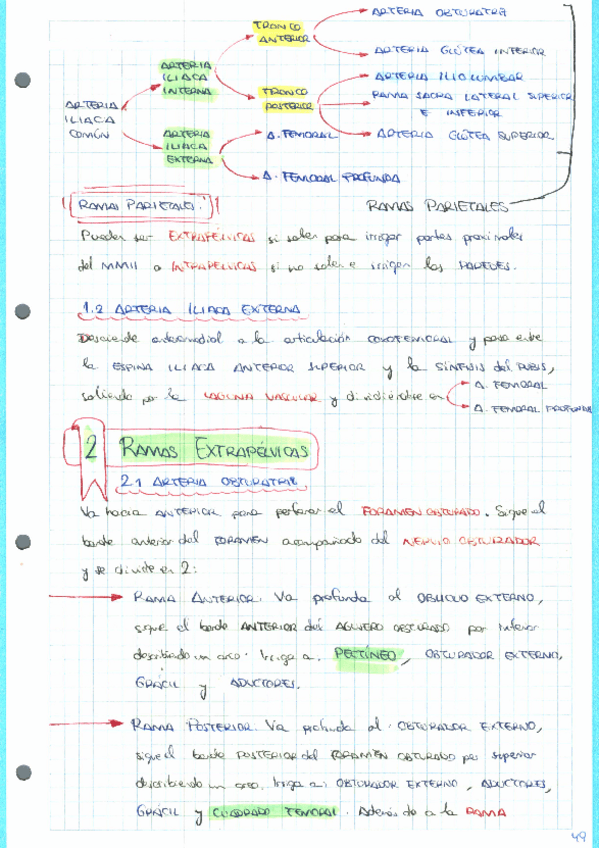 ARTERIA ILIACA COMÚN
ARTERIA ILIACA INTERNA
ARTERIA ILIACA EXTERNA
TRONCO ANTERIOR
TRONCO POSTERIOR
A. FEMORAL
A. FEMORAL PROFUNDA
ARTERIA OBTURATRIZ
ARTERIA GLÚTEA INFERIOR
ARTERIA ILIOLUMBAR
RAMA SACRA LATERAL SUPERIOR
E INFERIOR
ARTERIA GLÚTEA SUPERIOR.
RAMAS PARIETALES.
RAMAS PARIETALES
Pueden ser EXTRAPÉLVICAS si salen para irrigar partes proximales
del MMII o INTRAPÉLVICAS si no salen e irrigan las PAREDES.
1.2 ARTERIA ILIACA EXTERNA
Desciende anteromedial a la articulación COXOFEMORAL y pasa entre
la ESPINA ILIACA ANTERIOR SUPERIOR y la SÍNFISIS del PUBIS,
saliendo por la LAGUNA VASCULAR y dividiéndose en
A. FEMORAL
A. FEMORAL PROFUNDA
2 RAMAS EXTRAPÉLVICAS
2.1 ARTERIA OBTURATRIZ
Va hacia ANTERIOR para perforar el FORAMEN OBTURADO. Sigue el
borde anterior del FORAMEN acompañado del NERVIO OBTURADOR
y se divide en 2:
RAMA ANTERIOR. Va profunda al OBLICUO EXTERNO,
sigue el borde ANTERIOR del AGUJERO OBTURADO por inferior
describiendo un arco. Irriga a: PECTÍNEO, OBTURADOR EXTERNO,
GRÁCIL y ADUCTORES.
RAMA POSTERIOR. Va profunda al OBTURADOR EXTERNO,
sigue el borde POSTERIOR del FORAMEN OBTURADO por superior
describiendo un arco. Irriga a: OBTURADOR EXTERNO, ADUCTORES,
GRÁCIL y CUADRADO FEMORAL. Además da a la RAMA
49